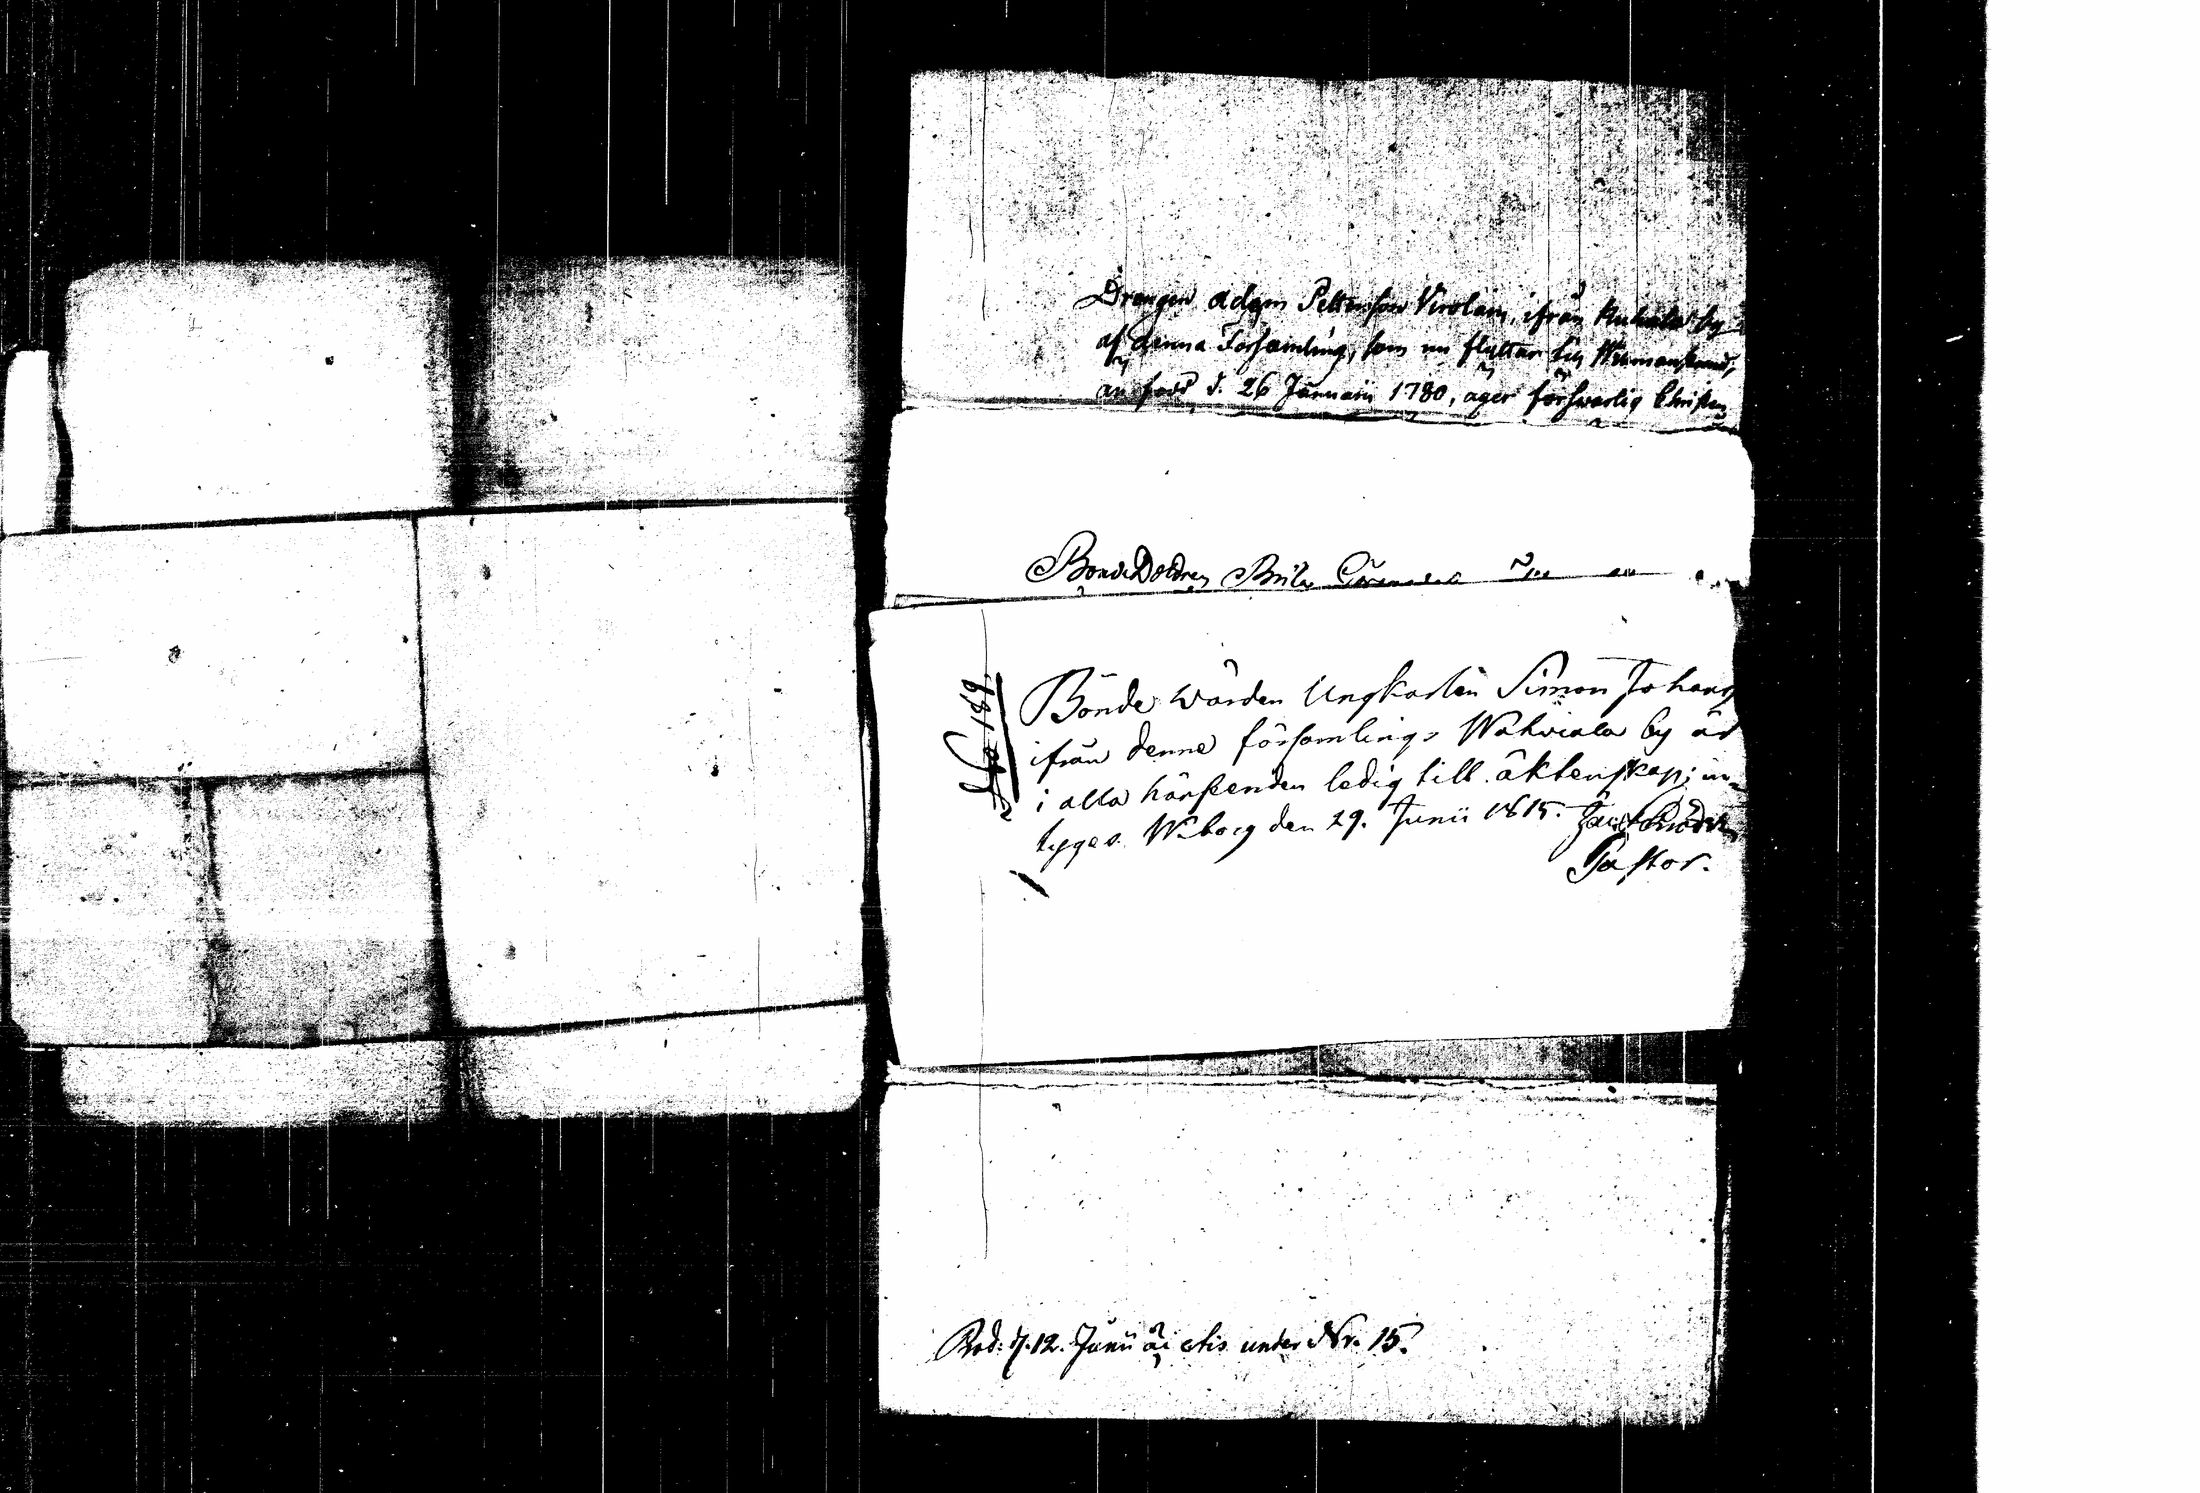 Drengen Adam Pettersson Virolain, ifrån by
af denna Församling, som nu flyttar till
är född d. 26 Januarii 1780, äger försvarlig Christen
BondeDottren Brita
No 189.
Bonde wården Ungkarlen Simon Johans
ifrån denne församlings Wahviala by är
i alla hänseenden ledig till äktenskap; in-
tygas. Wiborg den 29. Junii 1815.
Pastor.
Prod: d. 12. Junii ai etis under Nr. 15.